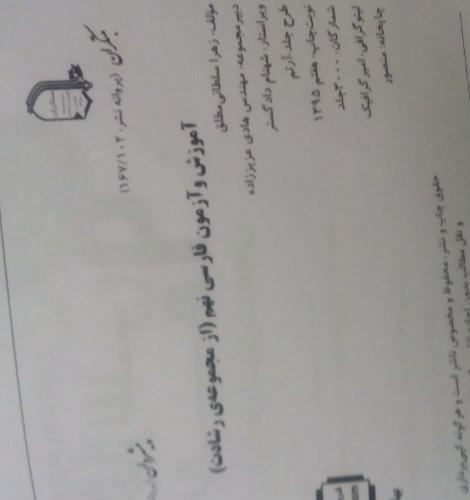 مبتکران (پروانه نشر: ۱۶۷/۱۰۲)
پیشروان
آموزش و آزمون فارسی نهم (از مجموعه‌ی رشادت)
مؤلف: زهرا سلطانی‌مطلق
دبیر مجموعه: مهندس هادی عزیززاده
ویراستار: شهنام دادگستر
طرح جلد: آرتم
نوبت چاپ: هفتم ۱۳۹۵
شمارگان: ۳۰۰۰ جلد
لیتوگرافی: امیرگرافیک
چاپخانه: منصور
حقوق چاپ و نشر، محفوظ و مخصوص ناشر است و هرگونه کپی‌برداری
و نقل مطالب بدون